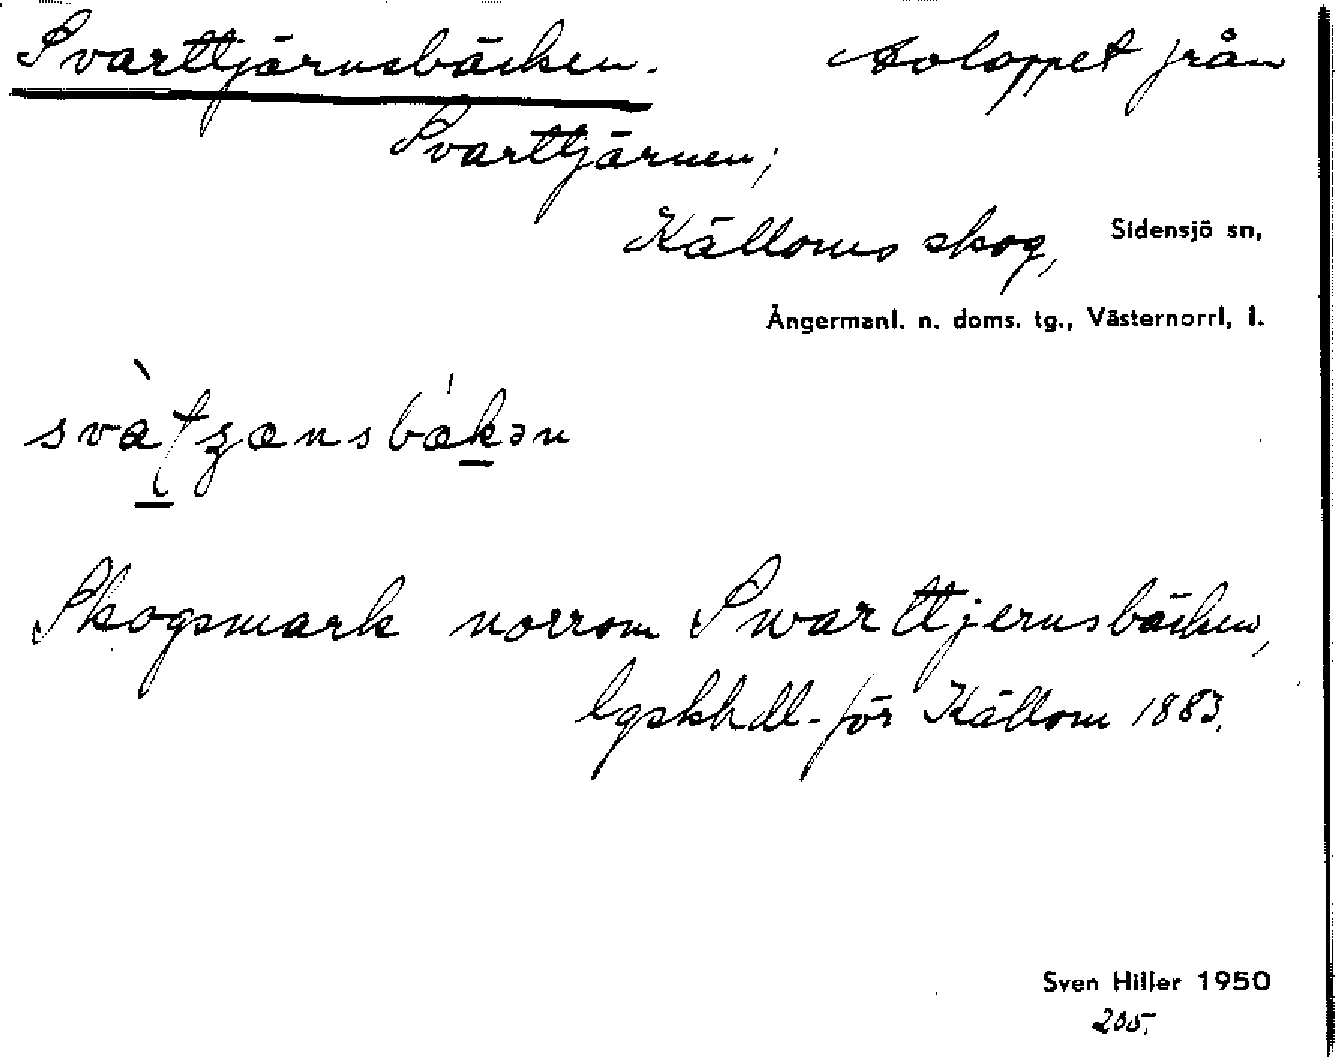 Svarttjärnsbäcken. Avloppet från
Svarttjärnen;
Källoms skog, Sidensjö sn,
Ångermanl. n. doms. tg., Västernorrl. l.
Skogsmark norrom Swarttjernsbäcken,
lgskhdl. för Källom 1883.
Sven Hiller 1950
205.